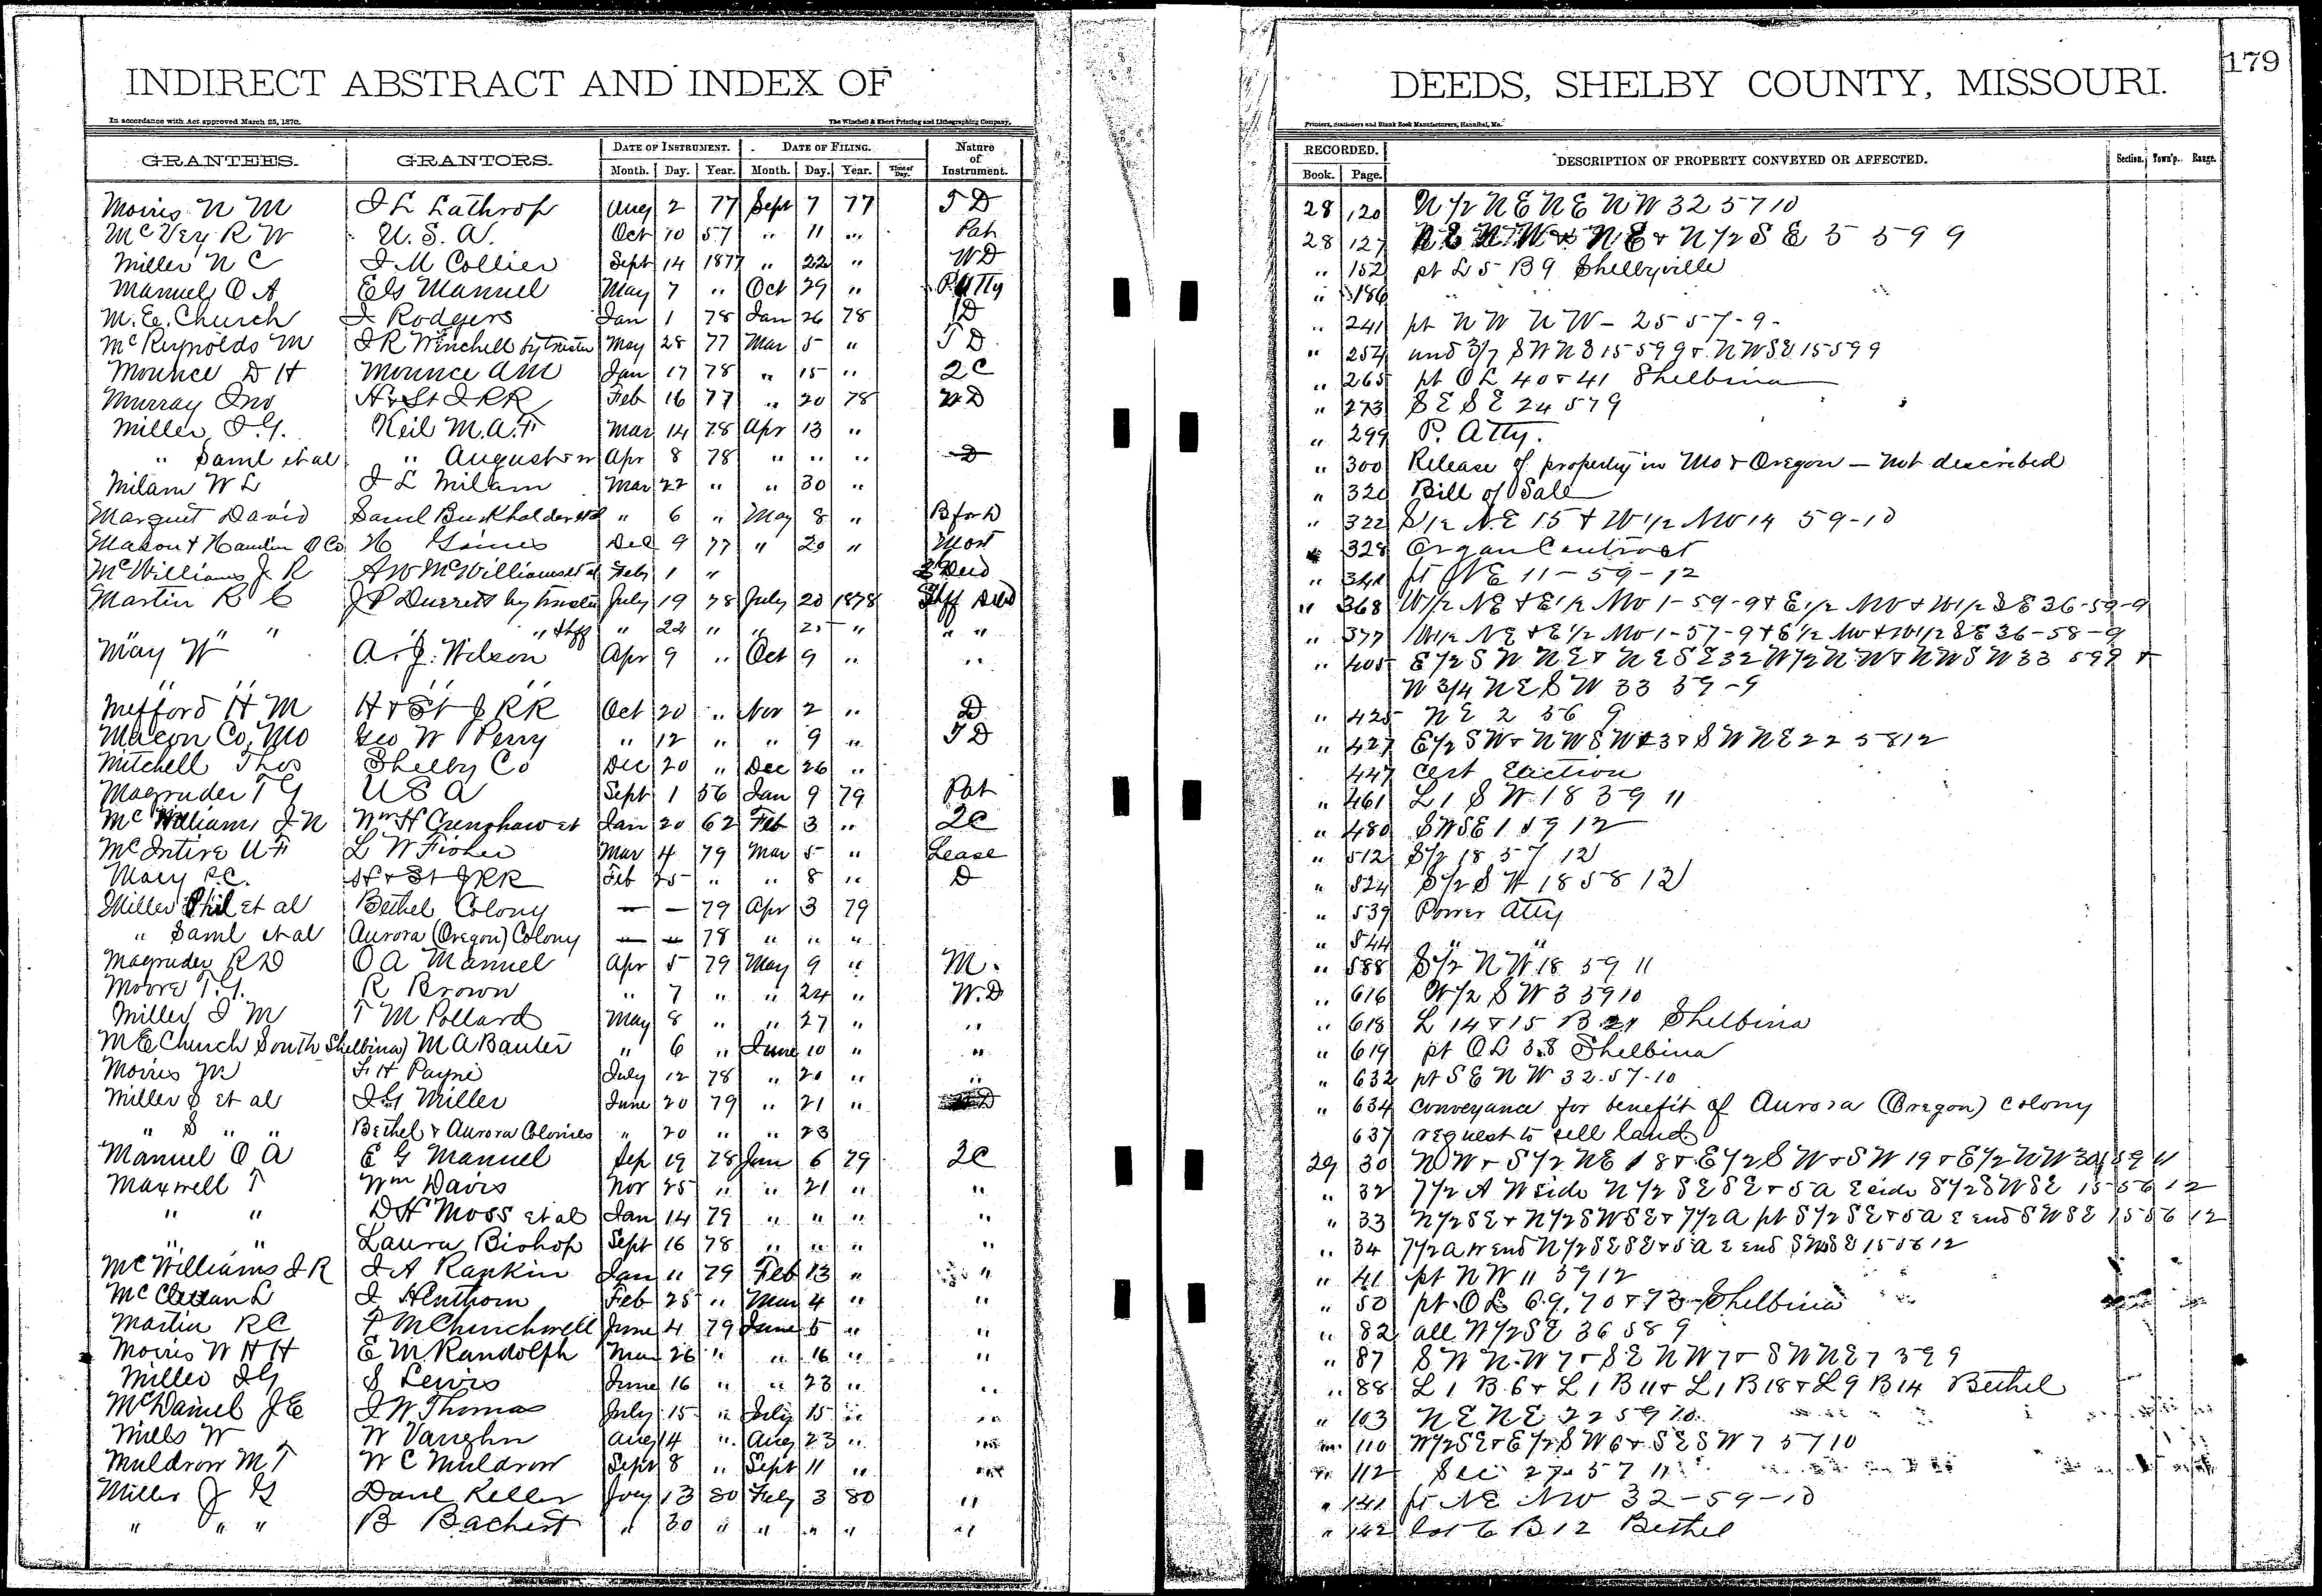 INDIRECT ABSTRACT AND INDEX OF DEEDS, SHELBY COUNTY, MISSOURI. 179
In accordance with Act approved March 25, 1870. The Winchell & Ebert Printing and Lithographing Company, Printers, Stationers and Blank Book Manufacturers, Hannibal, Mo.
GRANTEES. GRANTORS. DATE OF INSTRUMENT. DATE OF FILING. Nature of Instrument. RECORDED. DESCRIPTION OF PROPERTY CONVEYED OR AFFECTED. Section. Town'p. Range.
Month. Day. Year. Month. Day. Year. Time of Day. Book. Page.
Morris N M J L Lathrop Aug 2 77 Sept 7 77 T D 28 120 N 1/2 N E N E N W 32 57 10
McVey R W U. S. A. Oct 10 57 " 11 " Pat 28 127 N E + N 1/2 S E 5 59 9
Miller N C J M Collier Sept 14 1877 " 22 " W D " 152 pt L 5 B 9 Shelbyville
Manuel O A Manuel May 7 " Oct 29 " P Atty " 186 " "
M. E. Church J Rodgers Jan 1 78 Jan 26 78 D " 241 pt N W N W - 25 57 - 9 -
McReynolds M J R Winchell by trustee May 28 77 Mar 5 " T D " 254 und 3/7 S W N E 15 59 9 + N W S E 15 59 9
Mounce D H Mounce A M Jan 17 78 " 15 " 2 C " 265 pt O L 40 + 41 Shelbina
Murray Jno H & St J R R Feb 16 77 " 20 78 W D " 273 S E S E 24 57 9
Miller J. G. Keil M. A. F Mar 14 78 Apr 13 " " 299 P. Atty.
" Saml et al " August Apr 8 78 " " " D " 300 Release of property in Mo & Oregon - not described
Milam W L J L Milam Mar 22 " " 30 " " 320 Bill of Sale
Marquet David Saml Burkholder " 6 " May 8 " B for D " 322 S 1/2 N E 15 + W 1/2 N W 14 59 - 10
Mason & Hamlin O Co H Gaines Dec 9 77 " 20 " Mort 328 Organ Contract
McWilliams J R A W McWilliams et al Feby 1 " Deed " pt N E 11 - 59 - 12
Martin R C J P Durrett by trustee July 19 78 July 20 1878 Shff Deed " 368 W 1/2 N E + E 1/2 N W 1 - 59 - 9 + E 1/2 N W + W 1/2 S E 36 - 59 - 9
" " " " " Shff " 22 " " " " " " 377 W 1/2 N E + E 1/2 N W 1 - 57 - 9 + E 1/2 N W + W 1/2 S E 36 - 58 - 9
May W A. J. Wilson Apr 9 " Oct 9 " " " 405 E 1/2 S W N E + N E S E 32 W 1/2 N W + N W S W 33 59 9 +
" " " " " W 3/4 N E S W 33 59 - 9
Mefford H M H & St J R R Oct 20 " Nov 2 " D " 425 N E 2 56 9
Macon Co, Mo Geo W Perry " 12 " " 9 " T D " 427 E 1/2 S W + N W S W + S W N E 22 58 12
Mitchell Thos Shelby Co Dec 20 " Dec 26 " 447 Cert Election
Magruder T G U S A Sept 1 56 Jan 9 79 Pat " 461 L 1 S W 18 59 11
McWilliams J N Wm H Crenshaw et Jan 20 62 Feb 3 " 2 C " 480 S W S E 1 59 12
McIntire U F L W Fisher Mar 4 79 Mar 5 " Lease " 512 S 1/2 18 57 12
Macy P. C. H & St J R R Feb 25 " " 8 " D " 524 S 1/2 S W 18 58 12
Miller Phil et al Bethel Colony — — 79 Apr 3 79 " 539 Power Atty
" Saml et al Aurora (Oregon) Colony — — 78 " " " " 544 " "
Magruder R D O A Manuel Apr 5 79 May 9 " M. " 588 S 1/2 N W 18 59 11
Moore T. G. R Brown " 7 " " 24 " W. D " 616 W 1/2 S W 3 59 10
Miller J M T M Pollard May 8 " " 27 " " " 618 L 14 + 15 B 21 Shelbina
M E Church South Shelbina) M A Banter " 6 " June 10 " " " 619 pt O L 38 Shelbina
Morris M F H Payne July 12 78 " 20 " " " 632 pt S E N W 32. 57. 10
Miller S et al J G Miller June 20 79 " 21 " " 634 Conveyance for benefit of Aurora (Oregon) Colony
" S " " Bethel & Aurora Colonies " 20 " " 23 637 request to sell land
Manuel O A E G Manuel Sep 19 78 Jan 6 79 2 C 29 30 N W + S 1/2 N E 18 + E 1/2 S W + S W 19 + E 1/2 N W 30 59 11
Maxwell T Wm Davis Nov 25 " " 21 " " " 32 7 1/2 A W side N 1/2 S E S E + 5 a E side S 1/2 S W S E 15 56 12
" " D H Moss et al Jan 14 79 " " " " " 33 N 1/2 S E + N 1/2 S W S E + 7 1/2 a pt S 1/2 S E + 5 a E end S W S E 15 56 12
" " Laura Bishop Sept 16 78 " " " " " 34 7 1/2 a W end N 1/2 S E S E + 5 a E end S W S E 15 56 12
McWilliams J R J A Rankin Jan 11 79 Feb 13 " " " 41 pt N W 11 59 12
McClellan L J Henthorn Feb 25 " Mar 4 " " " 50 pt O L 69, 70 + 73 Shelbina
Martin R C T M Churchwell June 4 79 June 5 " " " 82 all W 1/2 S E 36 58 9
Morris W H H E M Randolph Mar 26 " " 16 " " " 87 S W N W 7 + S E N W 7 + S W N E 7 9
Miller J G S Lewis June 16 " " 23 " " " 88 L 1 B 6 + L 1 B 11 + L 1 B 18 + L 9 B 14 Bethel
McDaniel J E J W Thomas July 15 " July 15 " " " 103 N E N E 22 59 10
Mills W W Vaughn Aug 14 " Aug 23 " " " 110 W 1/2 S E + E 1/2 S W 6 + S E S W 7 57 10
Muldrow M T W C Muldrow Sept 8 " Sept 11 " " " 112 Sec 27 57 11
Miller J G Danl Keller 13 80 Feby 3 80 " " 141 pt N E N W 32 - 59 - 10
" " " B Bachert " 30 " " " " " " 142 lot 6 B 12 Bethel